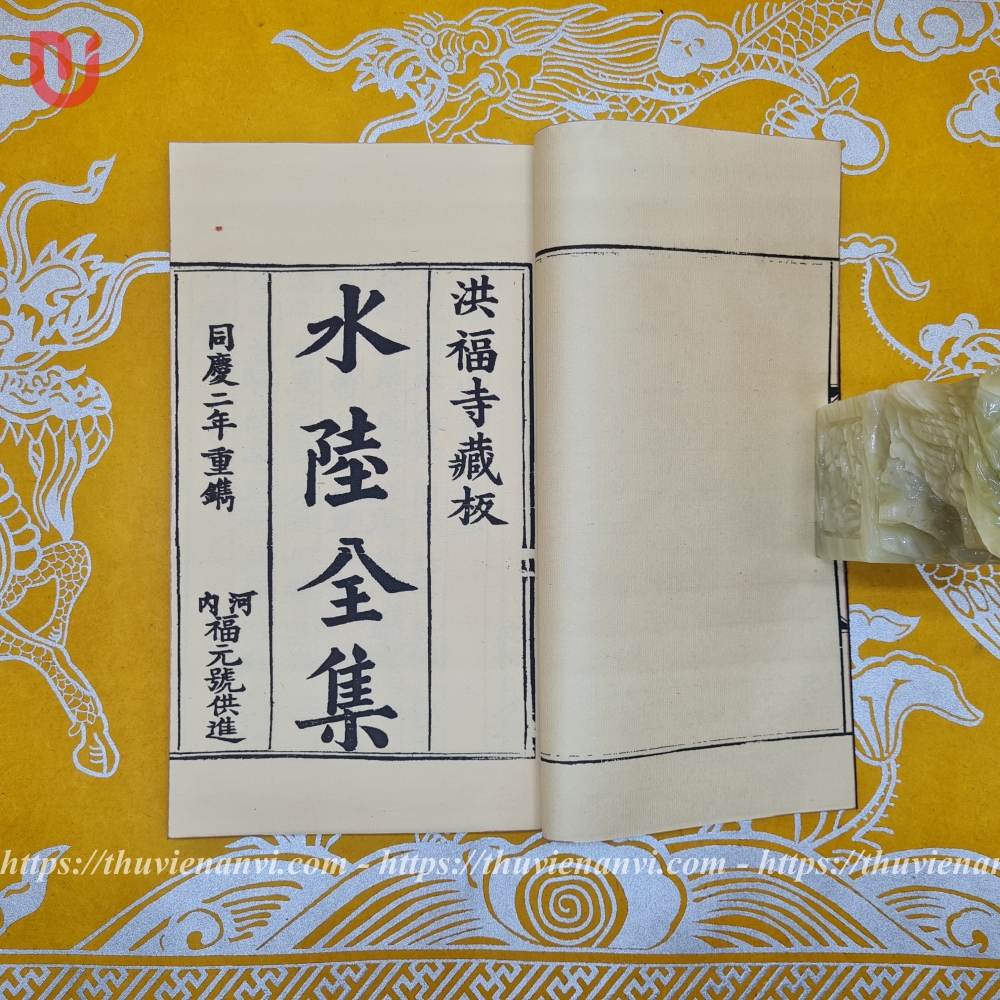 洪福寺藏板
水陸全集
同慶二年重鐫
河內福元號供進
https://thuvienanvi.com - https://thuvienanvi.com - https://thuviena